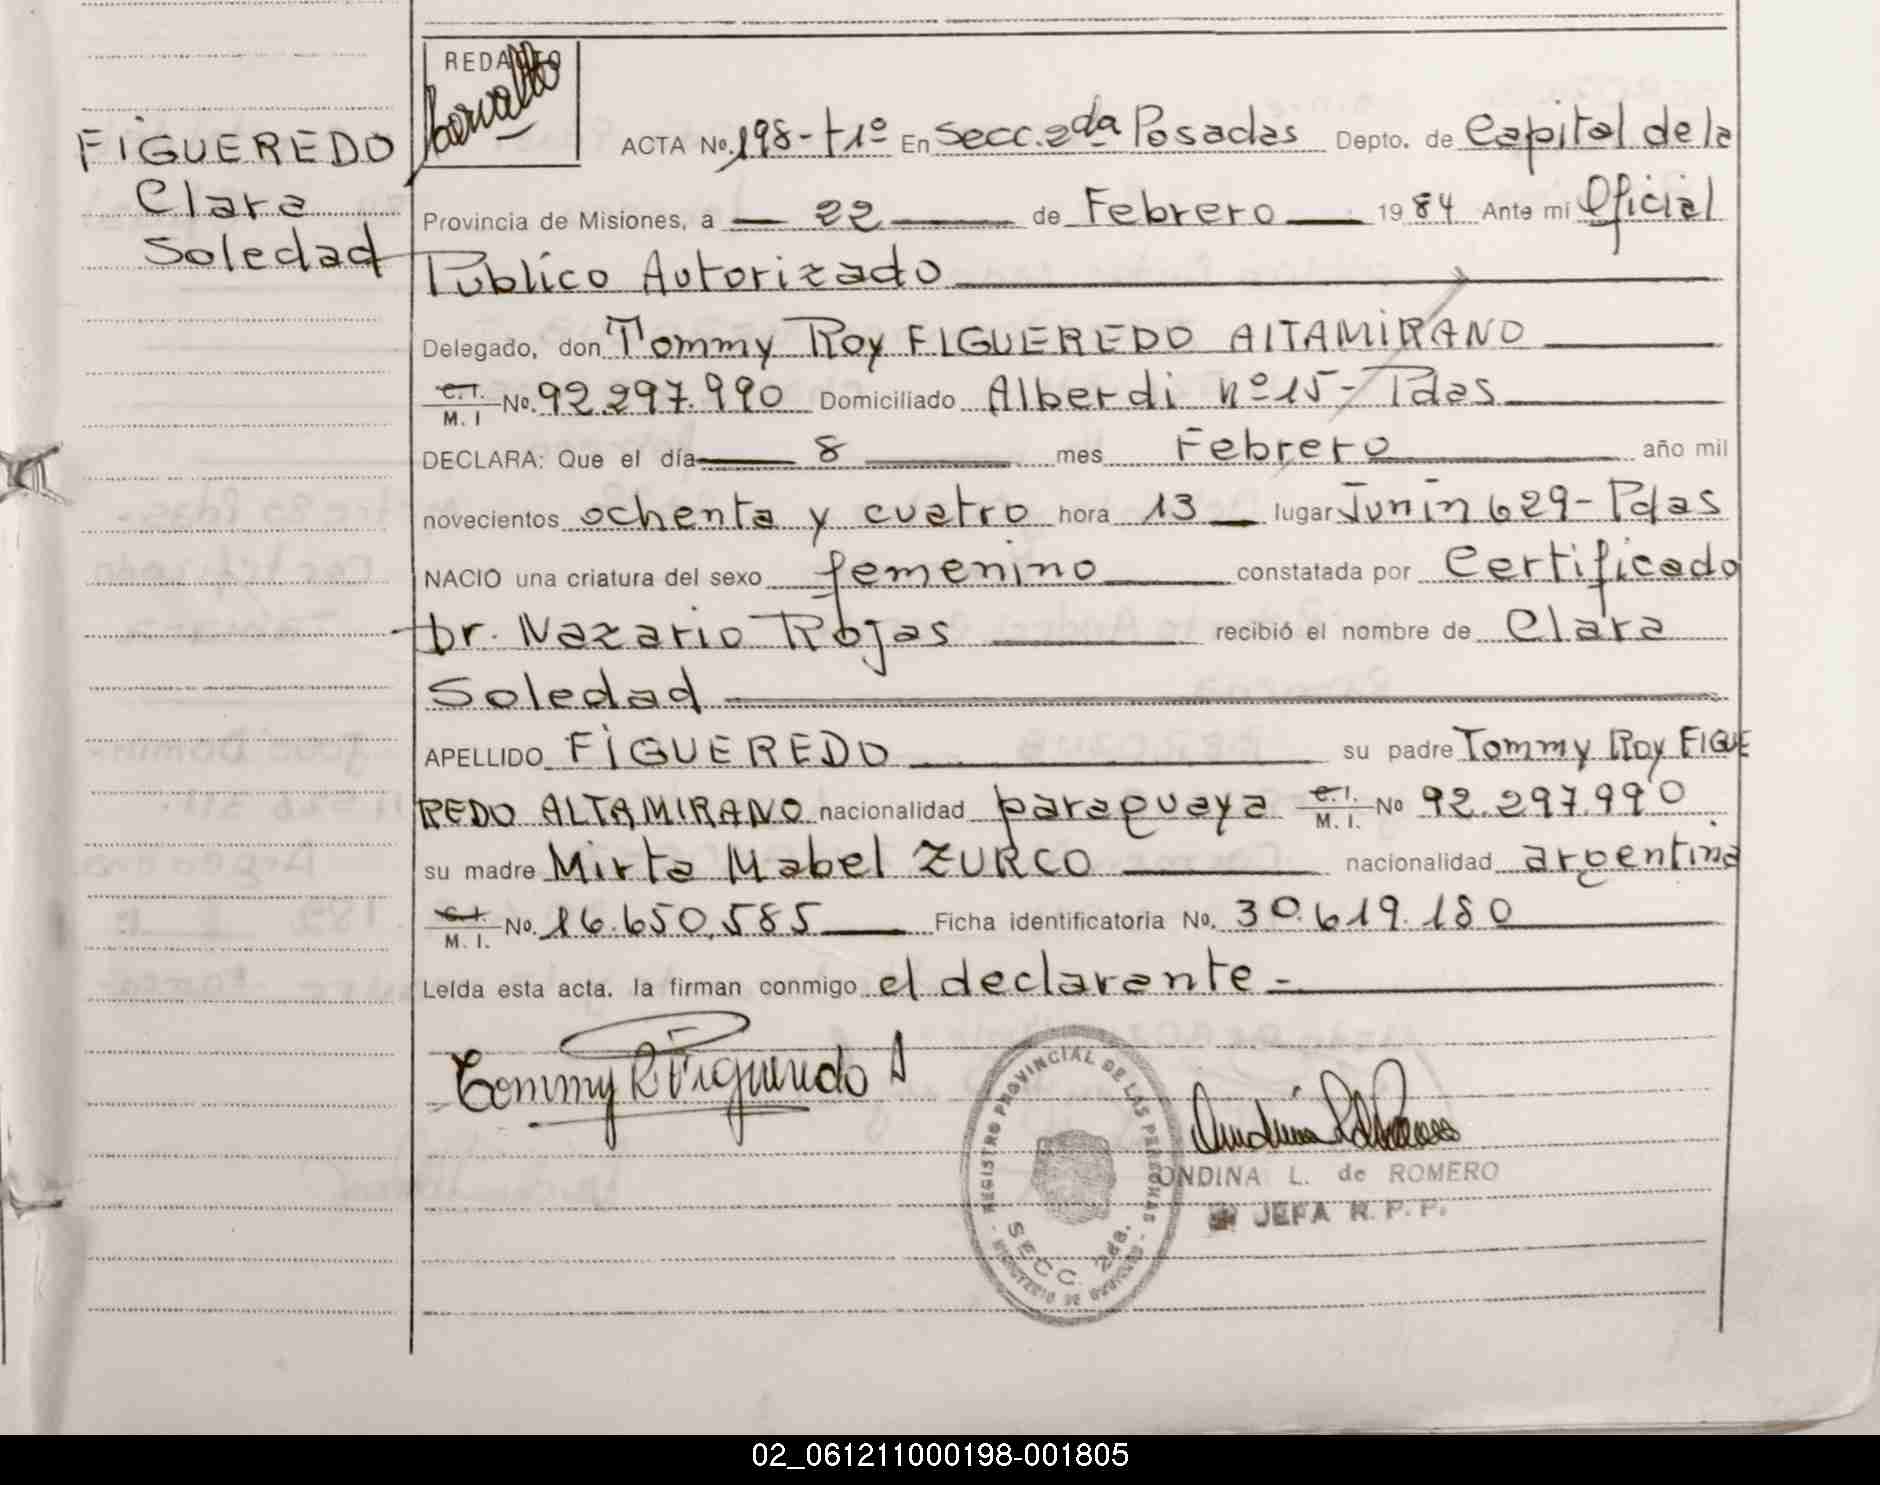 FIGUEREDO
Clara
Soledad
REDACTO
ACTA No. 198-t1º En Secc. 2da Posadas Depto. de Capital de la
Provincia de Misiones, a 22 de Febrero 1984 Ante mi Oficial
Publico Autorizado
Delegado, don Tommy Roy FIGUEREDO AlTAMIRANO
C.I. / M. I No. 92.297.990 Domiciliado Alberdi nº 15- Pdas
DECLARA: Que el día 8 mes Febrero año mil
novecientos ochenta y cuatro hora 13 lugar Junin 629- Pdas
NACIO una criatura del sexo femenino constatada por Certificado
Dr. Nazario Rojas recibió el nombre de Clara
Soledad
APELLIDO FIGUEREDO su padre Tommy Roy FIGUE
REDO ALTAMIRANO nacionalidad paraguaya C.I. / M. I. No 92.297.990
su madre Mirta Mabel ZURCO nacionalidad argentina
C.I. / M. I. No. 16.650.585 Ficha identificatoria No. 30.619.180
Leída esta acta. la firman conmigo el declarante -
Tommy R Figueredo A
REGISTRO PROVINCIAL DE LAS PERSONAS
SECC. 2da.
MINISTERIO DE GOBIERNO
ONDINA L. de ROMERO
JEFA R. P. P.
02_061211000198-001805